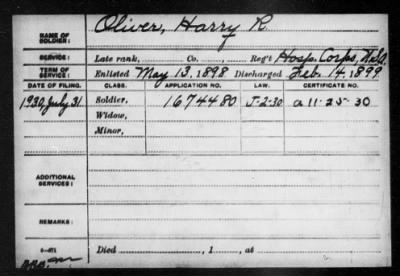 NAME OF SOLDIER: Oliver, Harry R.
SERVICE: Late rank, Co. Reg't Hosp. Corps, U.S.A.
TERM OF SERVICE: Enlisted May 13, 1898 Discharged Feb. 14, 1899
DATE OF FILING. CLASS. APPLICATION NO. LAW. CERTIFICATE NO.
1930, July 31 Soldier, 1674480 J-2-30 a 11-25-30
Widow,
Minor,
ADDITIONAL SERVICES:
REMARKS:
Died , 1 , at